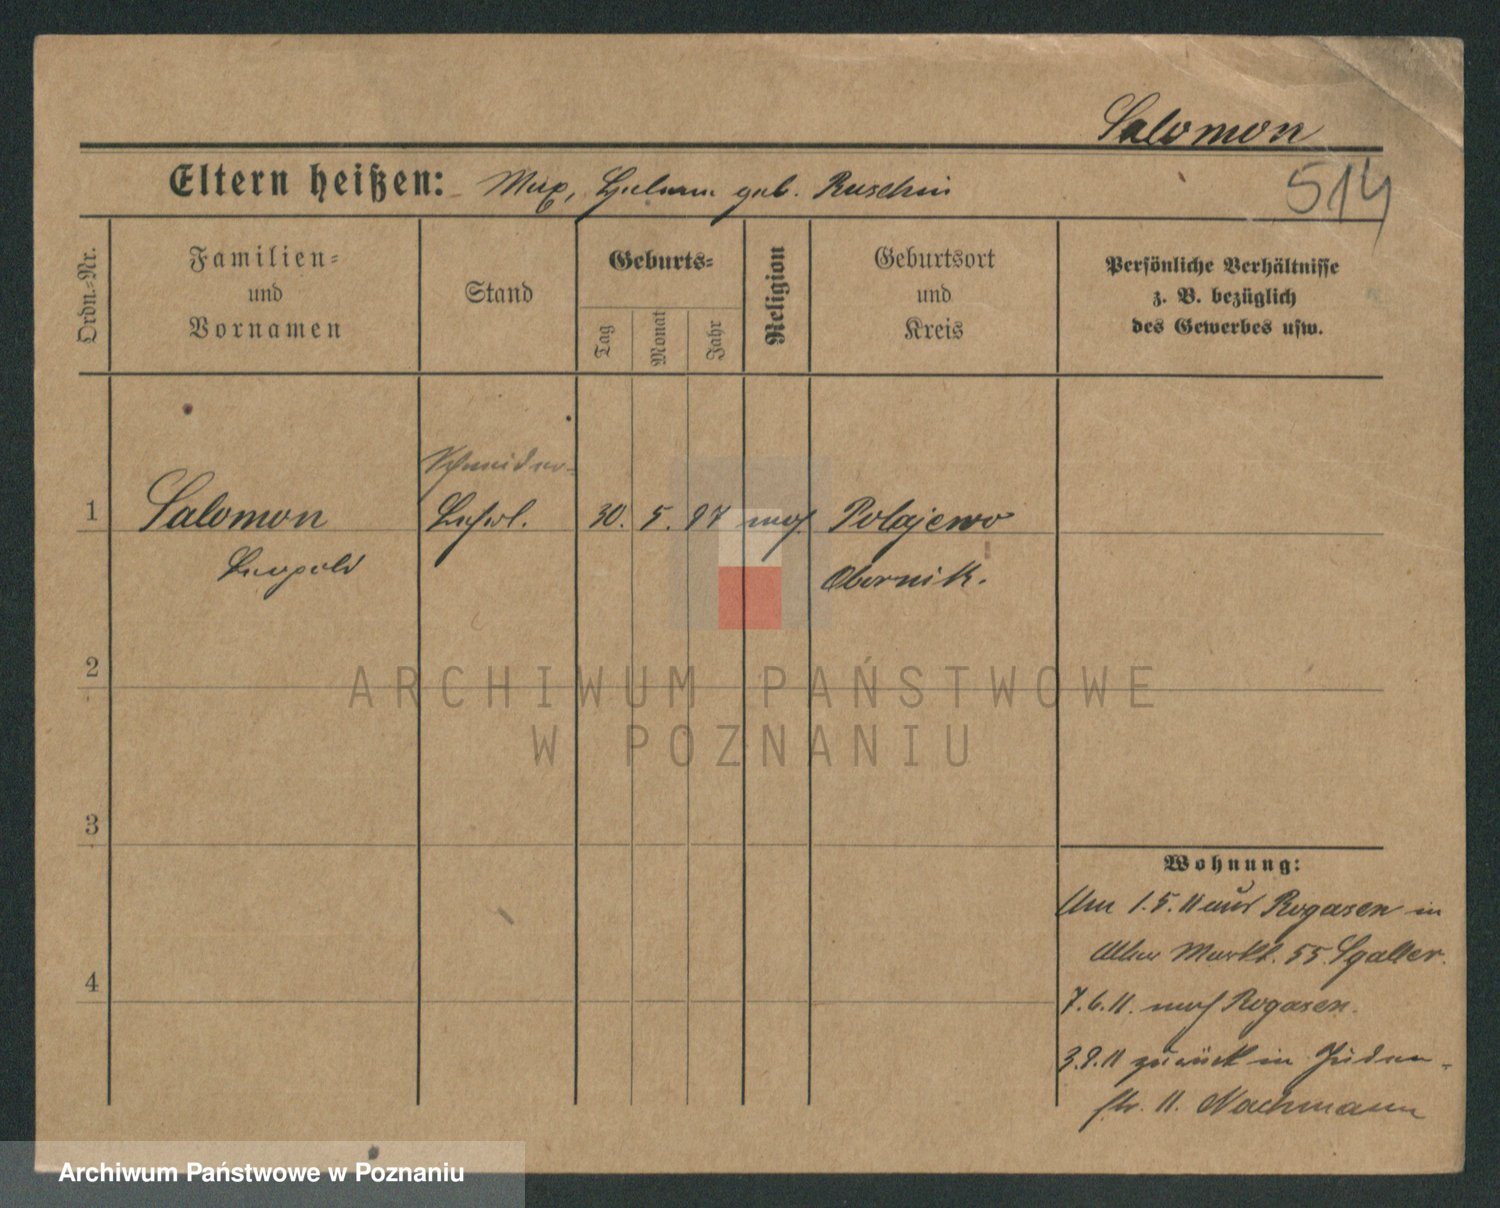 Salomon
514
Eltern heißen: Max, geb. Ruschin
Ordn.-Nr.
Familien-
und
Vornamen
Stand
Geburts-
Tag
Monat
Jahr
Religion
Geburtsort
und
Kreis
Persönliche Verhältnisse
z. B. bezüglich
des Gewerbes usw.
Schneider-
1 Salomon Lehrl. 30. 5. 97 mos. Polajewo
Leopold Obornik.
2
3
4
Wohnung:
Am 1.5.11 aus Rogasen in
Alter Markt. 55. Sgaller.
7.6.11. nach Rogasen.
3.9.11 zurück in Juden-
str. 11. Nachmann
ARCHIWUM PAŃSTWOWE
W POZNANIU
Archiwum Państwowe w Poznaniu